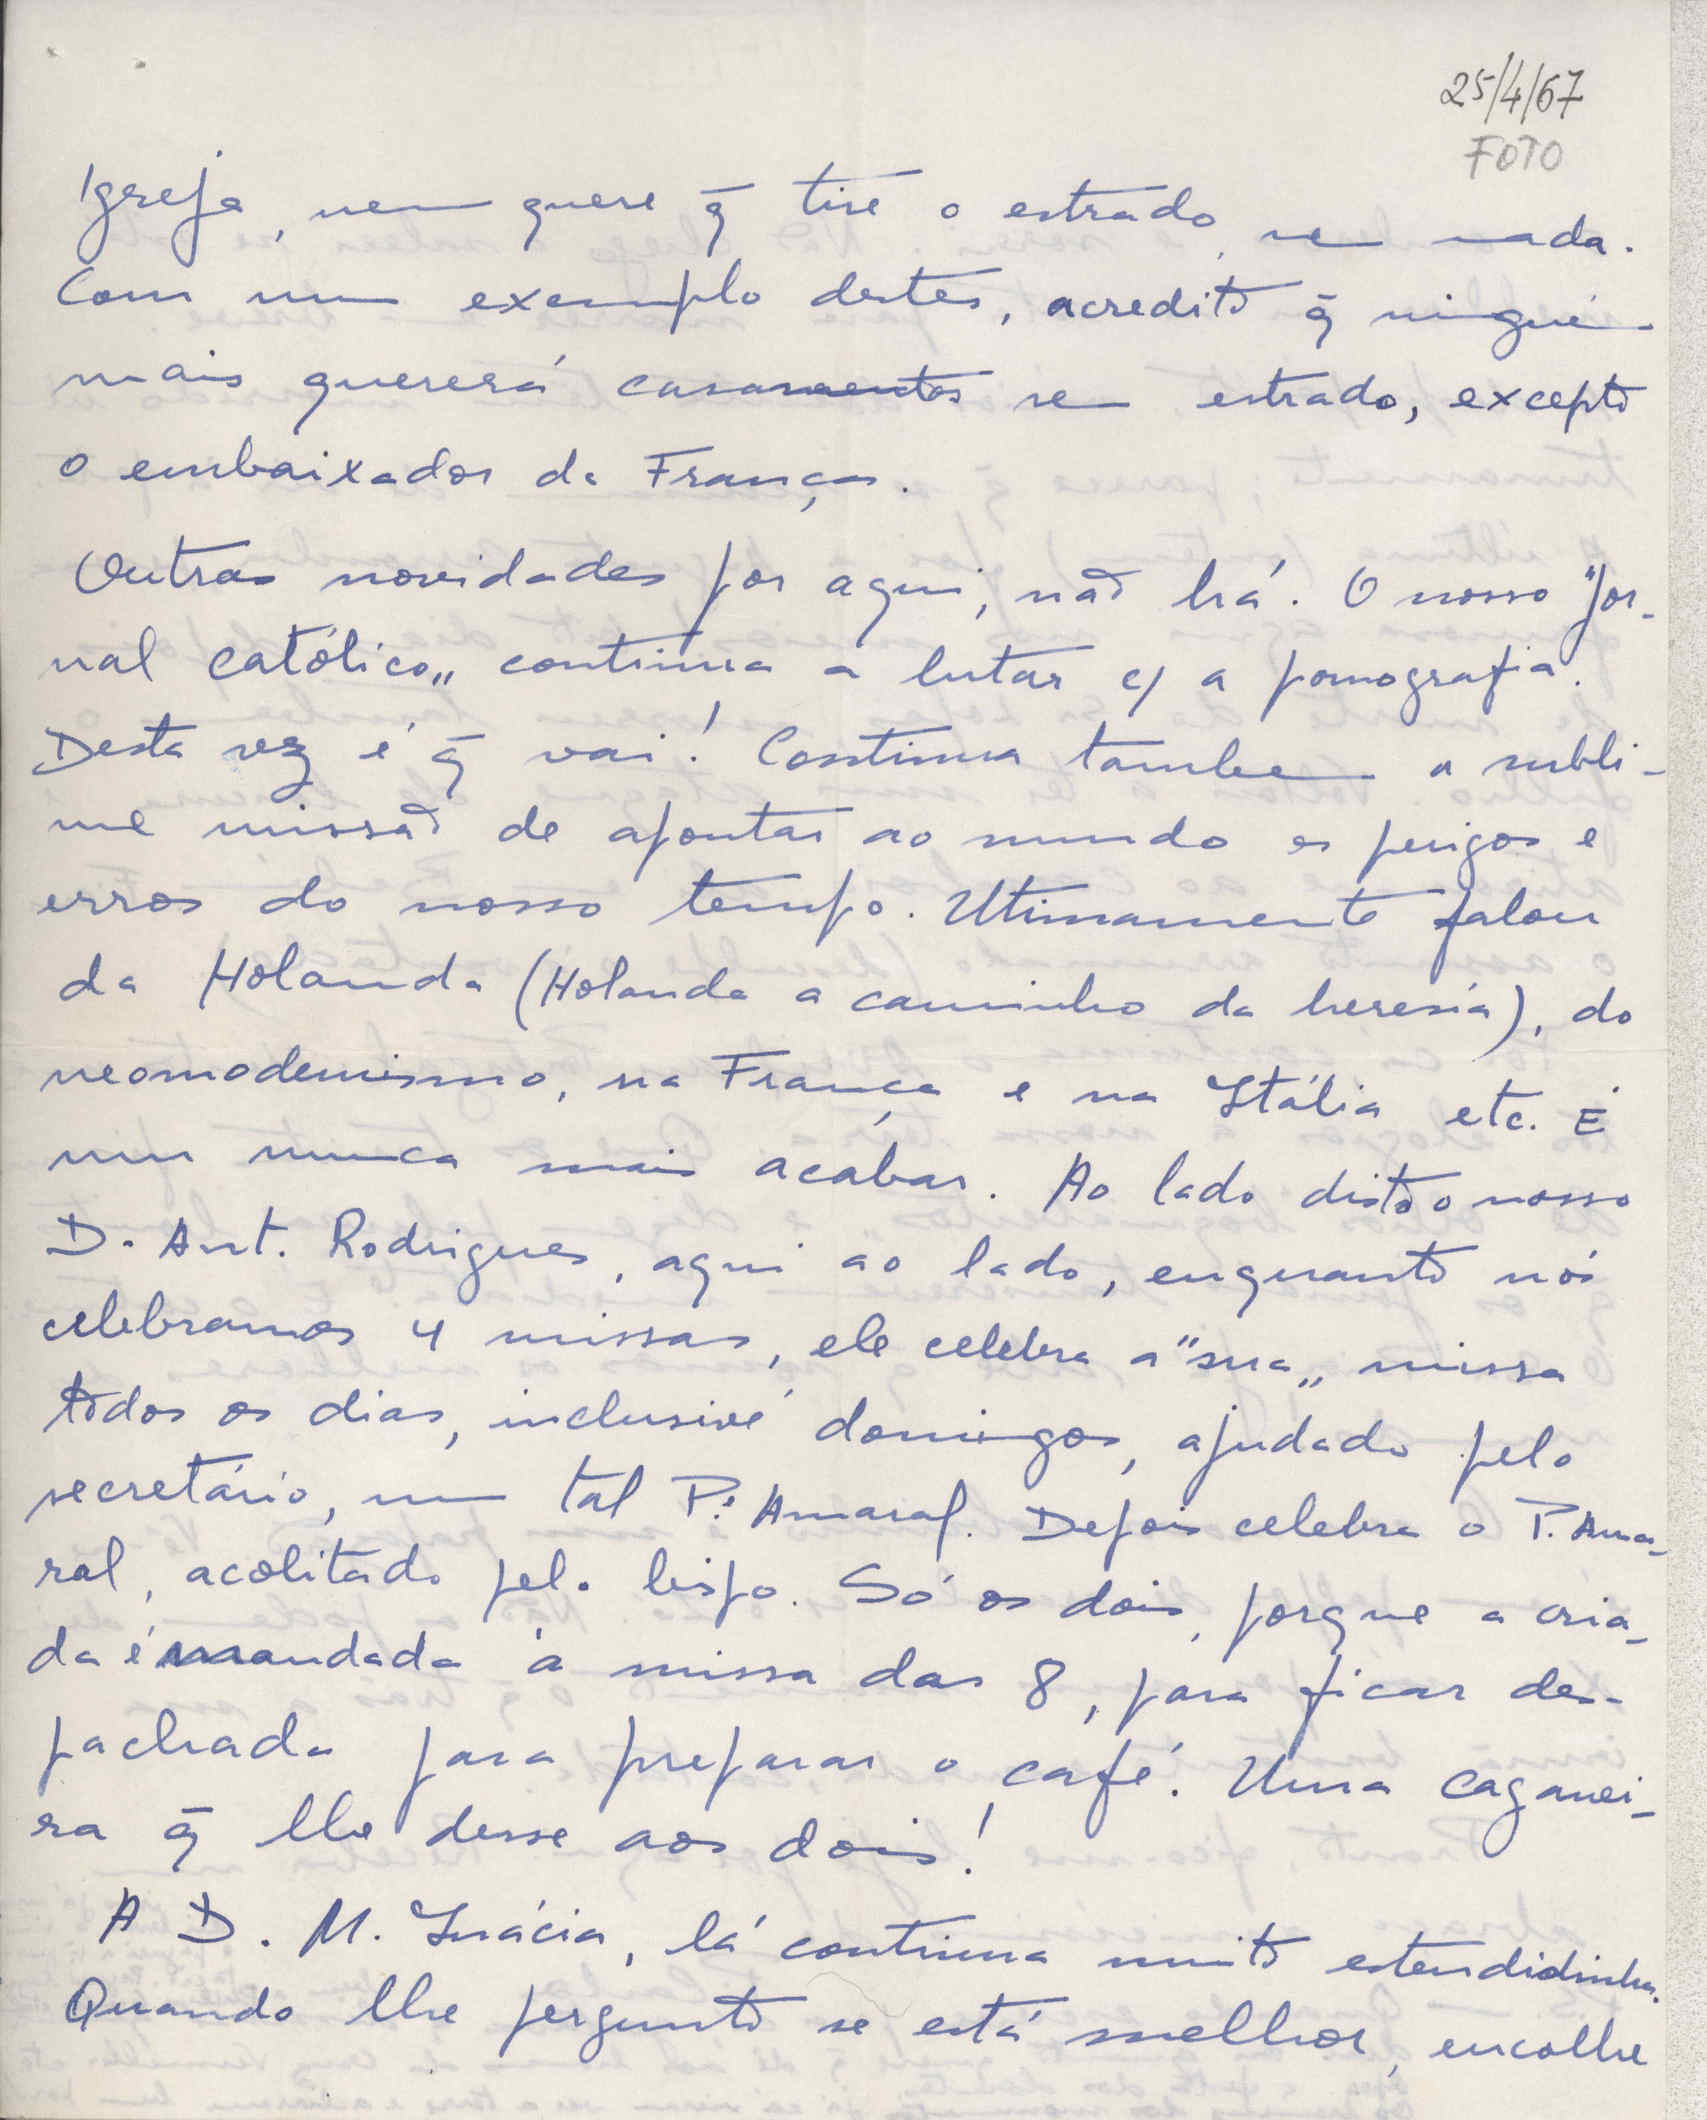 25/4/67
FOTO
Igreja, nem quere q̃ tire o estrado, nem nada.
Com um exemplo destes, acredito q̃ ninguém
mais quererá casamentos sem estrado, excepto
o embaixador da França.
Outras novidades por aqui, não há. O nosso "Jor-
nal católico„ continua a lutar c/ a pornografia.
Desta vez é q̃ vai! Continua tambem a subli-
me missão de apontar ao mundo os perigos e
erros do nosso tempo. Ultimamente falou
da Holanda (Holanda a caminho da heresia), do
neomodernismo, na França e na Itália etc. É
um nunca mais acabar. Ao lado disto o nosso
D. Ant. Rodrigues, aqui ao lado, enquanto nós
celebramos 4 missas, ele celebra a "sua„ missa
todos os dias, inclusivé domingos, ajudado pelo
secretário, um tal P.e Amaral. Depois celebra o P. Ama-
ral, acolitado pelo bispo. Só os dois, porque a cria-
da é mandada à missa das 8, para ficar des-
pachada para preparar o café. Uma caganei-
ra q̃ lhe desse aos dois!
A D. M. Inácia, lá continua muito estendidinha.
Quando lhe pergunto se está melhor, encolhe